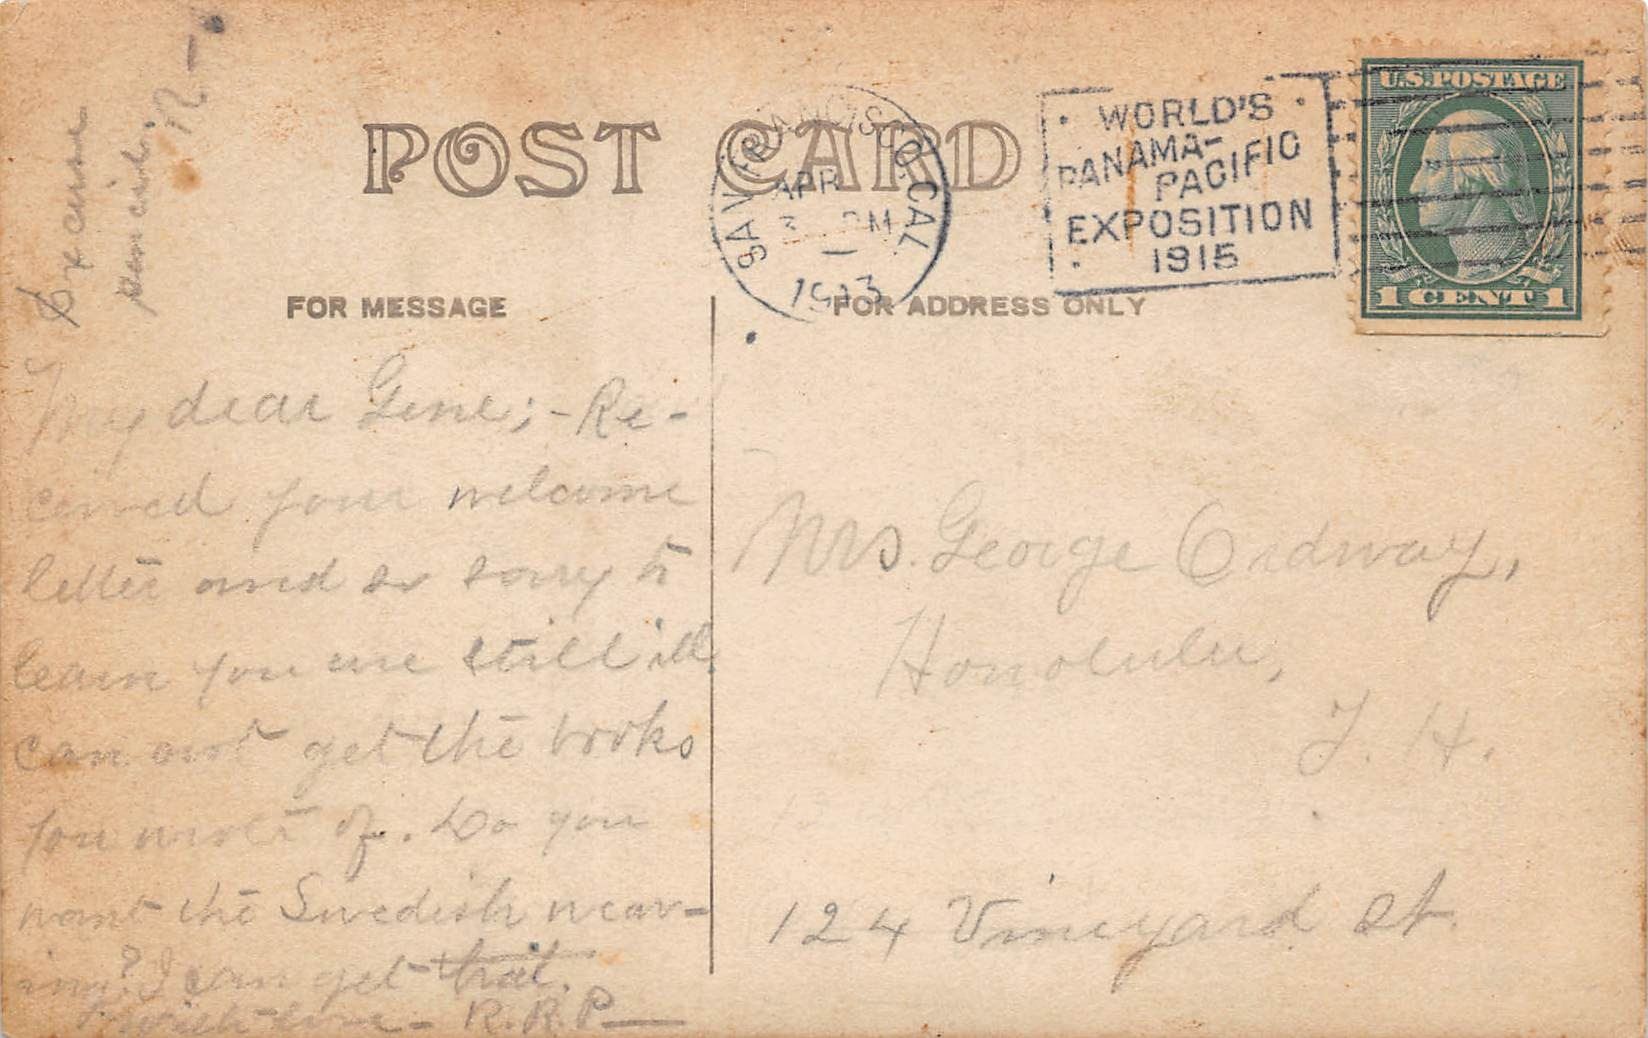 Excuse
pencil, R—
POST CARD
SAN FRANCISCO, CAL.
APR
3 PM
1913
WORLD'S
PANAMA-
PACIFIC
EXPOSITION
1915
U.S. POSTAGE
1 CENT 1
FOR MESSAGE
FOR ADDRESS ONLY
My dear Gene;- Re-
ceived your welcome
letter and so sorry to
learn you are still ill.
can not get the books
you wrote of. Do you
want the Swedish weav-
ing? I can get that.
with love - R.R.P—
Mrs. George Ordway,
Honolulu,
T. H.
124 Vineyard St.